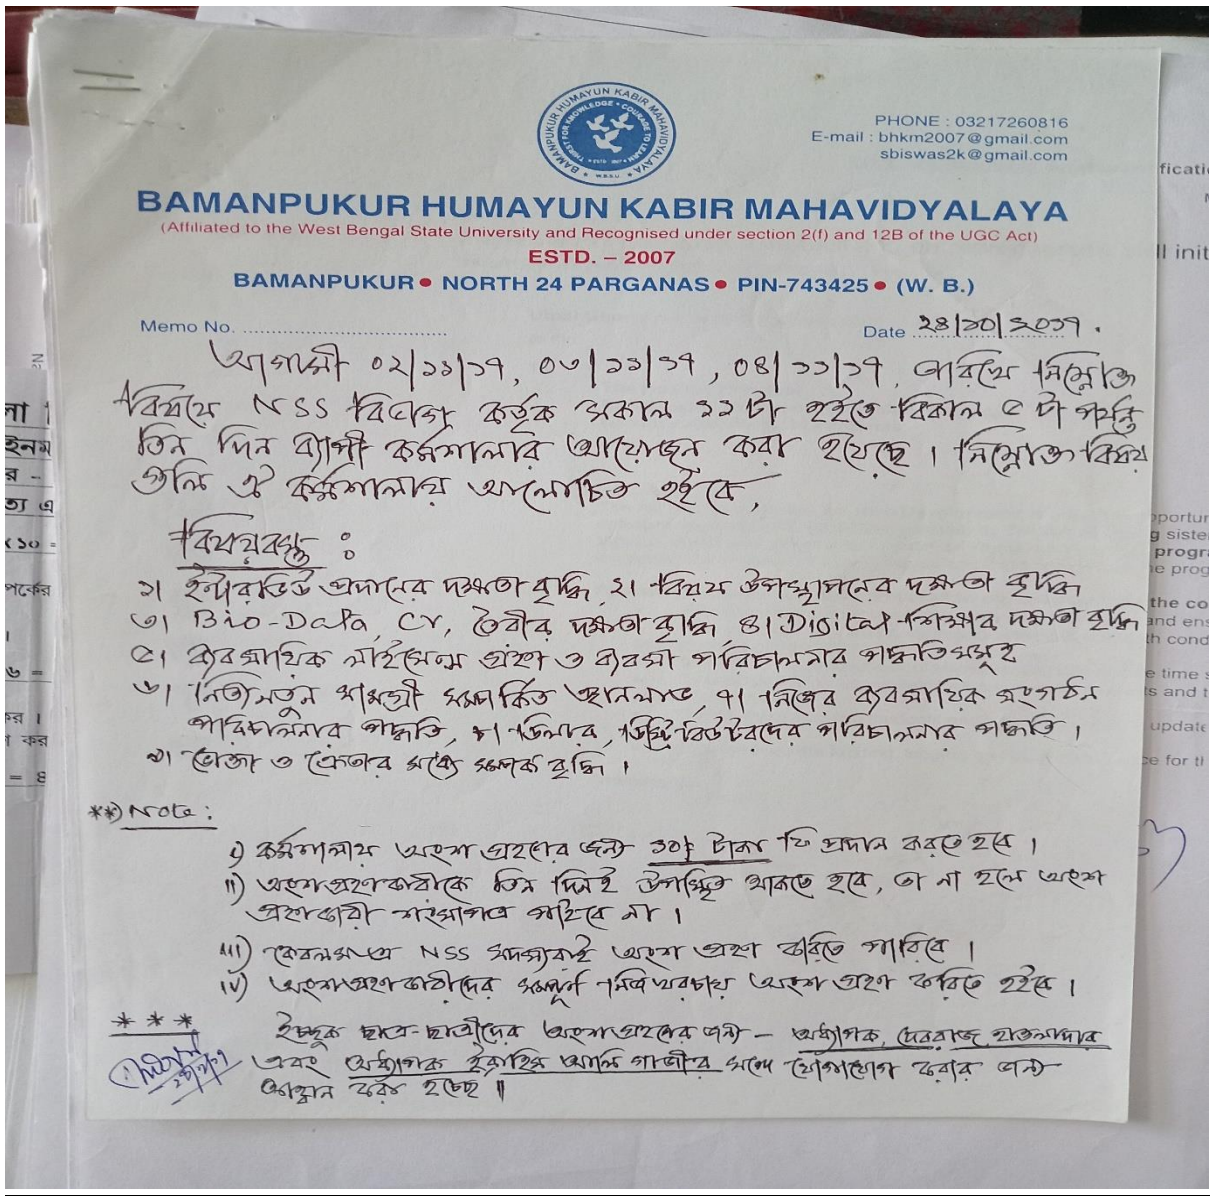 BAMANPUKUR HUMAYUN KABIR MAHAVIDYALAYA
THIRST FOR KNOWLEDGE • COURAGE TO LEARN
W.B.S.U.
PHONE : 03217260816
E-mail : bhkm2007@gmail.com
sbiswas2k@gmail.com
BAMANPUKUR HUMAYUN KABIR MAHAVIDYALAYA
(Affiliated to the West Bengal State University and Recognised under section 2(f) and 12B of the UGC Act)
ESTD. – 2007
BAMANPUKUR • NORTH 24 PARGANAS • PIN-743425 • (W. B.)
Memo No. ..................................
Date ২৪/১০/২০১৭.
আগামী ০২/১১/১৭, ০৩/১১/১৭, ০৪/১১/১৭, তারিখে নিম্নোক্ত
বিষয়ে NSS বিভাগ কর্তৃক সকাল ১১ টা হইতে বিকাল ৫ টা পর্যন্ত
তিন দিন ব্যাপী কর্মশালার আয়োজন করা হয়েছে। নিম্নোক্ত বিষয়
গুলি ঐ কর্মশালায় আলোচিত হইবে,
বিষয়বস্তু :
১। ইন্টারভিউ প্রদানের দক্ষতা বৃদ্ধি ২। বিষয় উপস্থাপনের দক্ষতা বৃদ্ধি
৩। Bio-Data, CV, তৈরীর দক্ষতা বৃদ্ধি ৪। Digital শিক্ষার দক্ষতা বৃদ্ধি
৫। ব্যবসায়িক লাইসেন্স গ্রহণ ও ব্যবসা পরিচালনার পদ্ধতিসমূহ
৬। নিত্যনতুন সামগ্রী সম্পর্কিত জ্ঞানলাভ, ৭। নিজের ব্যবসায়িক সংগঠন
পরিচালনার পদ্ধতি, ৮। ডিলার, ডিস্ট্রিবিউটরদের পরিচালনার পদ্ধতি।
৯। ভোক্তা ও ক্রেতার মধ্যে সম্পর্ক বৃদ্ধি।
**) Note :
i) কর্মশালায় অংশ গ্রহণের জন্য ১০/- টাকা ফি প্রদান করতে হবে।
ii) অংশগ্রহণকারীকে তিন দিনই উপস্থিত থাকতে হবে, তা না হলে অংশ
গ্রহণকারী শংসাপত্র পাইবে না।
iii) কেবলমাত্র NSS সদস্যরাই অংশ গ্রহণ করিতে পারিবে।
iv) অংশগ্রহণকারীদের সম্পূর্ণ নিজ খরচায় অংশ গ্রহণ করিতে হইবে।
* * *
ইচ্ছুক ছাত্র-ছাত্রীদের অংশগ্রহণের জন্য – অধ্যাপক দেবরাজ হাওলাদার
এবং অধ্যাপক ইব্রাহিম আলি গাজীর সঙ্গে যোগাযোগ করার জন্য
আহ্বান করা হচ্ছে॥